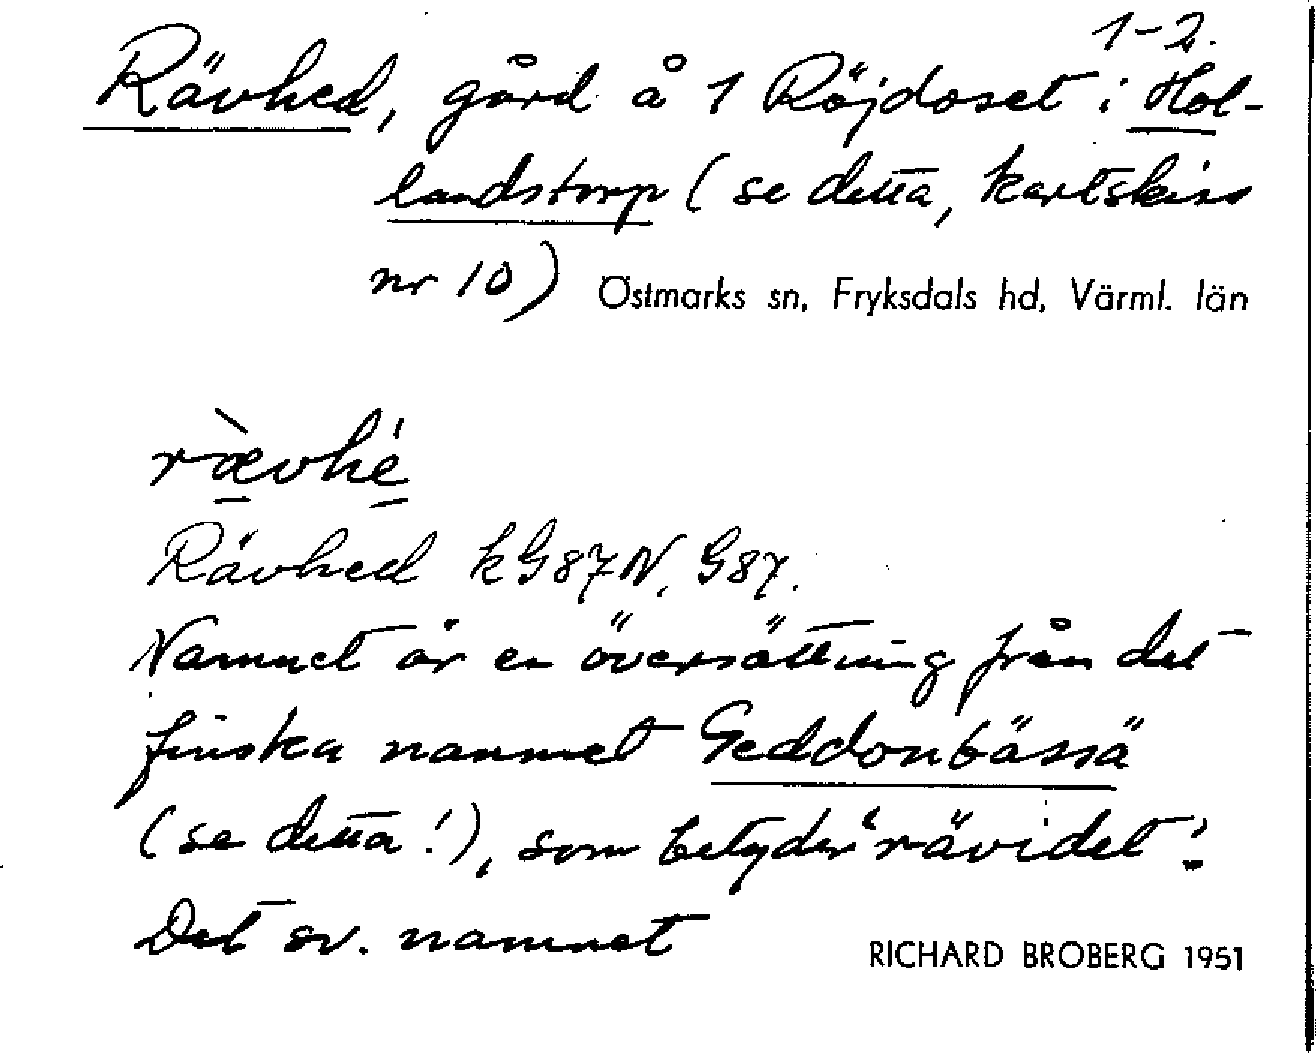 1-2.
Rävhed, gård å 1 Röjdoset i Hol-
landstorp (se detta, kartskiss
nr 10) Östmarks sn, Fryksdals hd, Värml. län
ræ̀vhé
Rävhed kG87N, G87.
Namnet är en översättning från det
finska namnet Geddonbässä
(se detta!), som betyder "rävidet".
Det sv. namnet
RICHARD BROBERG 1951